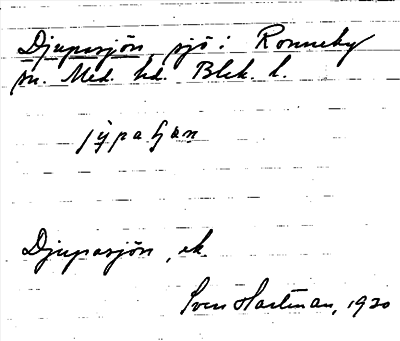 Djupasjön, sjö i Ronneby
sn. Med. hd. Blek. l.
Djupasjön, ek.
Sven Hartman, 1920